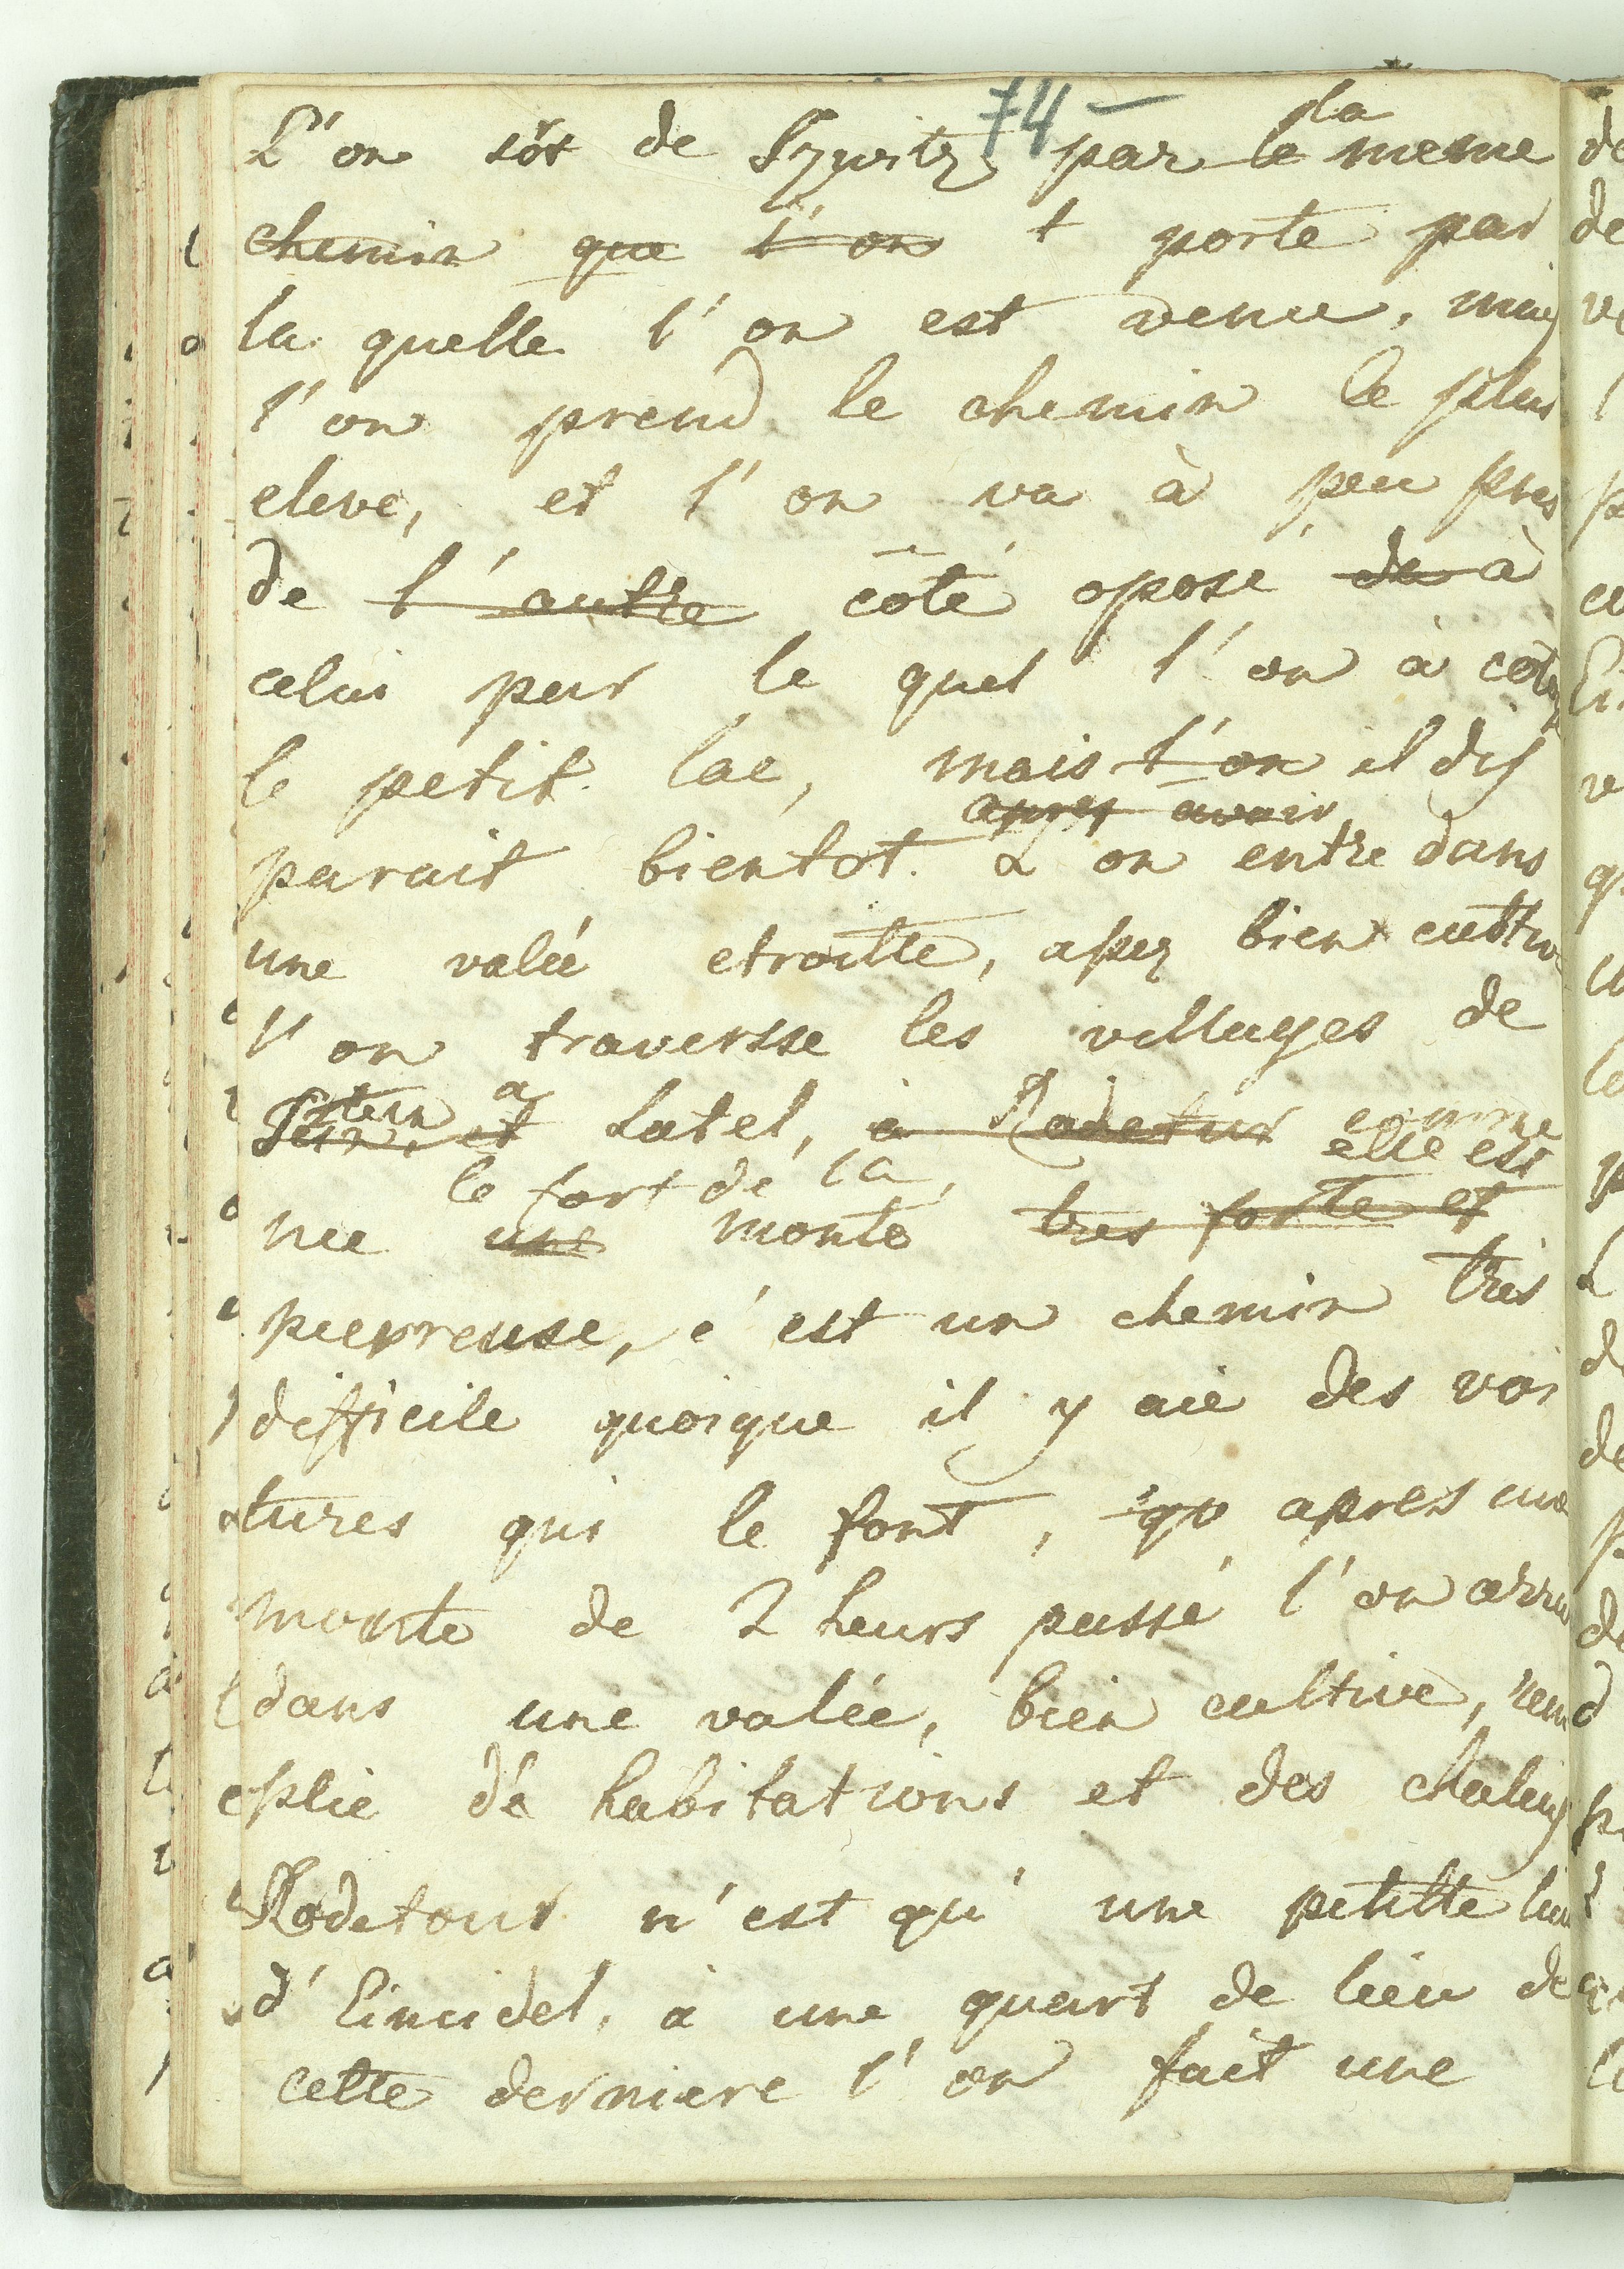 74 —
L'on sort de Szwitz par la le meme
chemin que l'on + porte par
la quelle l'on est venu, mais
l'on prend le chemin le plus
elevé, et l'on va à peu pres
de l'autre côté oposé de à
celui par le quel l'on à cot
le petit lac, mais l'on il dis
apres avoir
parait bientot. L'on entre dans
une valée etroitte, assez bien cultiv
l'on traversse les villages de
Sztein a
et Satel, à Rodetur comme
le fort de la, elle est
nce une monté tres forte et
pierreuse, c'est un chemin très
difficile quoique il y aie des voi
tures qui le font, qu apres une
monte de 2 heurs passé l'on arriv
dans une valée, bien cultivé, rem
plie dé habitations et des chaleys
Rodetour n'est qu'une petitte lieu
d'Einsidel, à une quart de lieu de
cette derniere l'on fait une